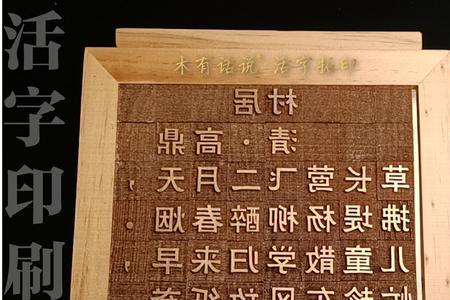 活字印刷
木有话说 活字印
村居
清·高鼎
草长莺飞二月天，
拂堤杨柳醉春烟。
儿童散学归来早，
忙趁东风放纸鸢